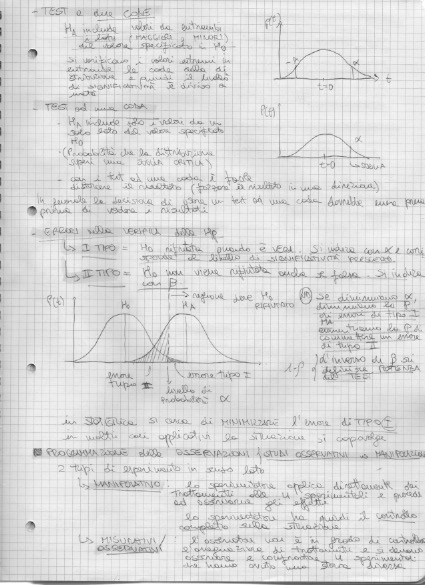 - TEST a due CODE
H₁ include valori da entrambi
i lati (MAGGIORI e MINORI)
del valore specificato in H₀
si verificano i valori estremi in
entrambe le code della di
stribuzione e quindi il livello
di significatività è diviso a
metà
P(t)
-α
α
t=0
t
- TEST ad una CODA
- H₁ include solo i valori da un
solo lato del valore specificato
H₀
- (Probabilità che la distribuzione
superi una soglia critica)
P(t)
α
t=0
- con i test ad una coda è facile
ottenere il risultato (
risultato in una direzione)
In generale la decisione di fare un test ad una coda dovrebbe essere presa
prima di vedere i risultati
- ERRORI nella verifica delle Hp
↳ I TIPO = H₀ rifiutata quando è vera. Si indica con α e corri
sponde al livello di significatività prescelto
↳ II TIPO = H₀ non viene rigettata anche se falsa. Si indica
con β
P(t)
H₀
H₁
→ regione dove H₀
RIFIUTATO
Se diminuiamo α,
diminuiamo la P
di errore di tipo I
MA
aumentiamo la P di
commettere un errore
di tipo II
errore
tipo II
errore tipo I
livello di
probabilità α
1-β
l'inverso di β si
definisce POTENZA
del TEST
in STATISTICA si cerca di MINIMIZZARE l'errore di TIPO I
in molti casi applicativi la situazione si capovolge
PROGRAMMAZIONE delle OSSERVAZIONI / STUDI OSSERVATIVI e MANIPOLATIVI
2 tipi di esperimento in senso lato
↳ MANIPOLATIVO: lo sperimentatore applica direttamente dei
trattamenti alle U. sperimentali e procede
ad osservarne gli effetti
lo sperimentatore ha quindi il controllo
completo sulla situazione
↳ MISURATIVI/
OSSERVATIVI: l'osservatore non è in grado di controllare
l'assegnazione di trattamenti e si devono
osservare e confrontare U. sperimentali
che hanno avuto una storia diversa